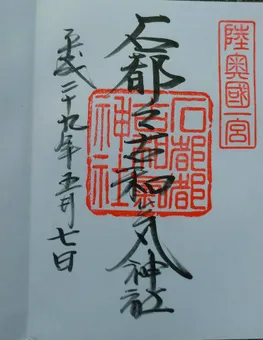 陸奥國一宮
石都々古和気神社
石都都古和気神社
平成二十九年五月七日